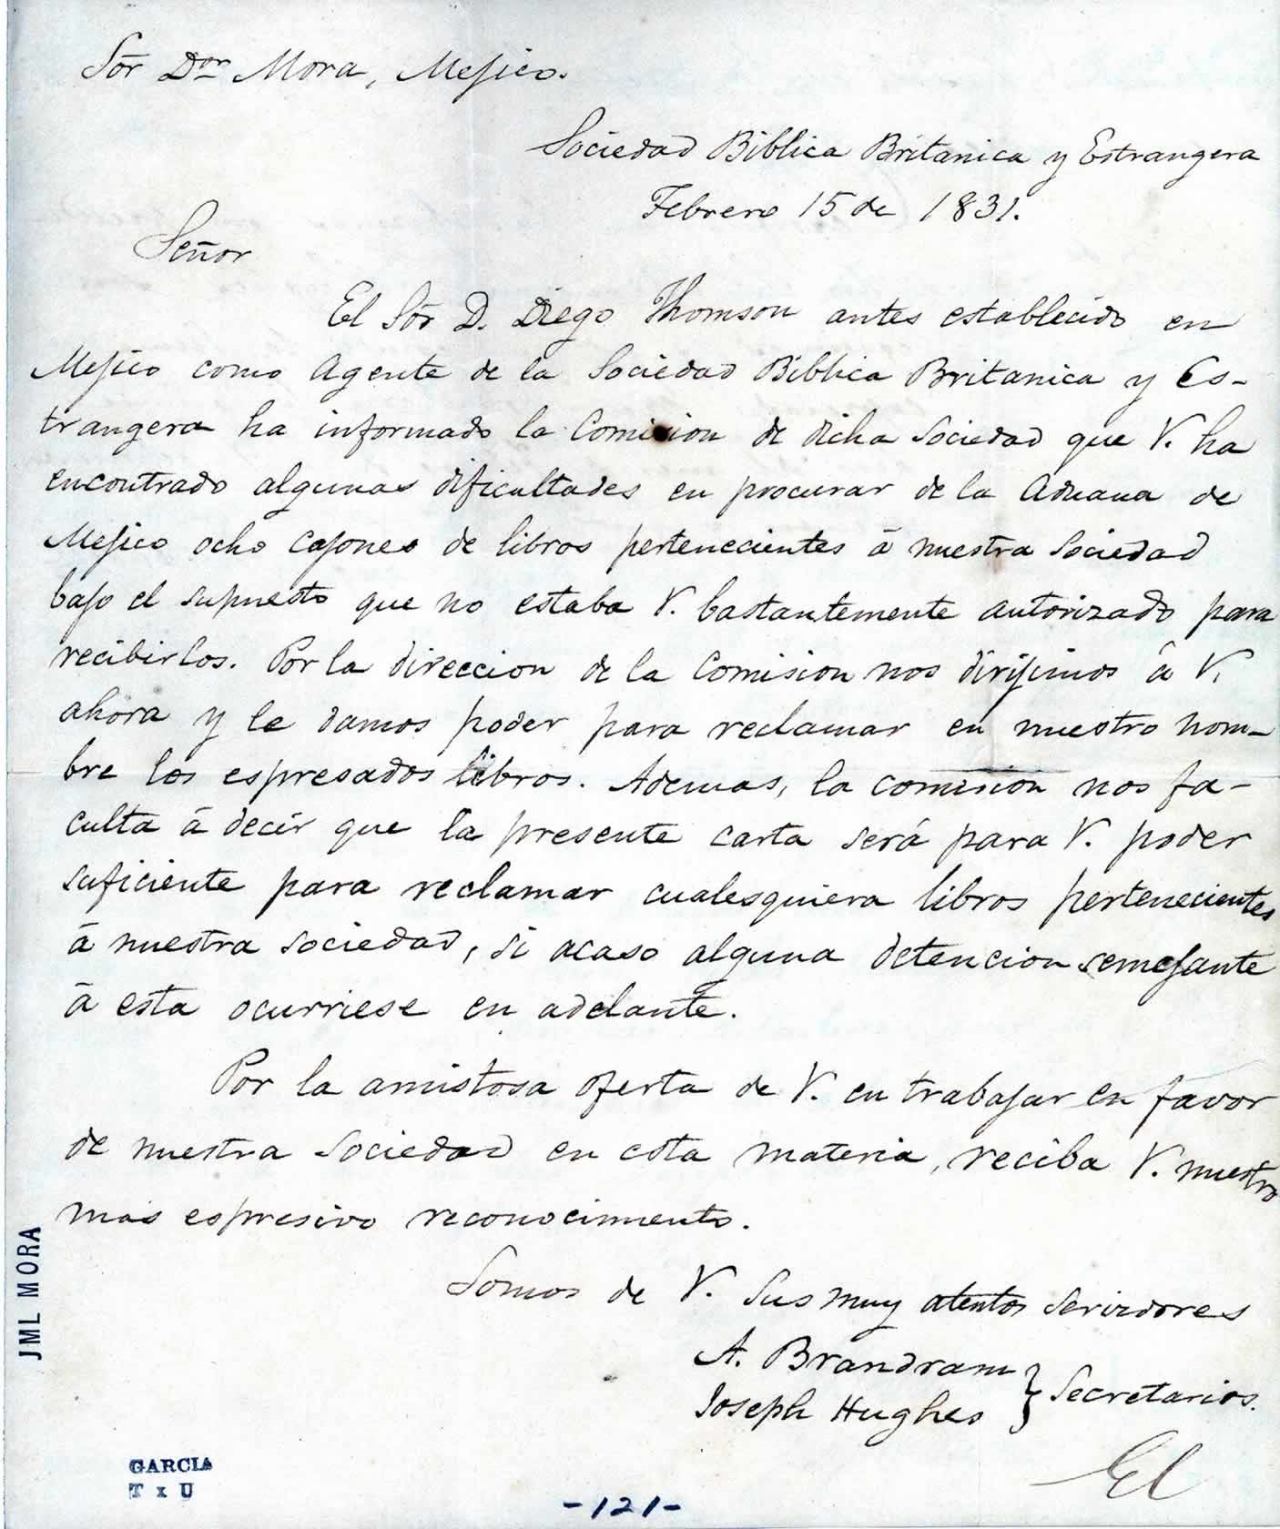 Sõr Dor Mora, Mejico.
Sociedad Biblica Britanica y Estrangera
Febrero 15 de 1831.
Señor
El Sõr D. Diego Thomson antes establecido en
Mejico como Agente de la Sociedad Biblica Britanica y Es-
trangera ha informado la Comision de dicha Sociedad que V. ha
encontrado algunas dificultades en procurar de la Aduana de
Mejico ocho cajones de libros pertenecientes á nuestra Sociedad
bajo el supuesto que no estaba V. bastantemente autorizado para
recibirlos. Por la direccion de la Comision nos dirijimos á V.
ahora y le damos poder para reclamar en nuestro nom-
bre los espresados libros. Ademas, la comision nos fa-
culta á decir que la presente carta será para V. poder
suficiente para reclamar cualesquiera libros pertenecientes
á nuestra sociedad, si acaso alguna detencion semejante
á esta ocurriese en adelante.
Por la amistosa oferta de V. en trabajar en favor
de nuestra Sociedad en esta materia, reciba V. nuestro
mas espresivo reconocimiento.
Somos de V. Sus muy atentos servidores
A. Brandram
Joseph Hughes } Secretarios.
El
JML MORA
GARCIA
T x U
-121-